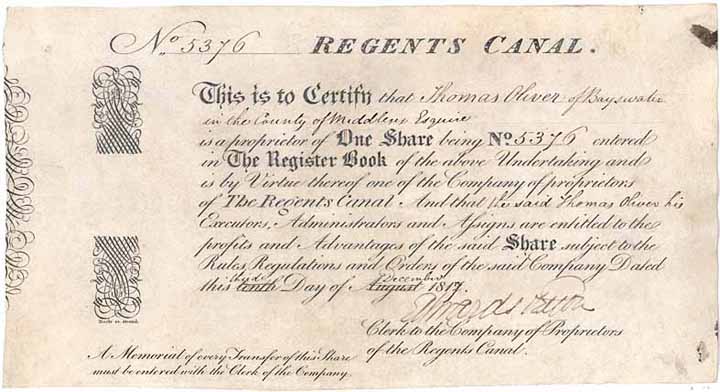 No. 5376 REGENTS CANAL.
This is to Certify that Thomas Oliver of Bayswater
in the County of Middlesex Esquire
is a proprietor of One Share being No. 5376 entered
in The Register Book of the above Undertaking and
is by Virtue thereof one of the Company of proprietors
of The Regents Canal And that the said Thomas Oliver his
Executors, Administrators and Assigns are entitled to the
profits and Advantages of the said Share subject to the
Rules Regulations and Orders of the said Company Dated
December
this tenth Day of August 1817.
Clerk to the Company of Proprietors
of the Regents Canal.
A Memorial of every Transfer of this Share
must be entered with the Clerk of the Company.